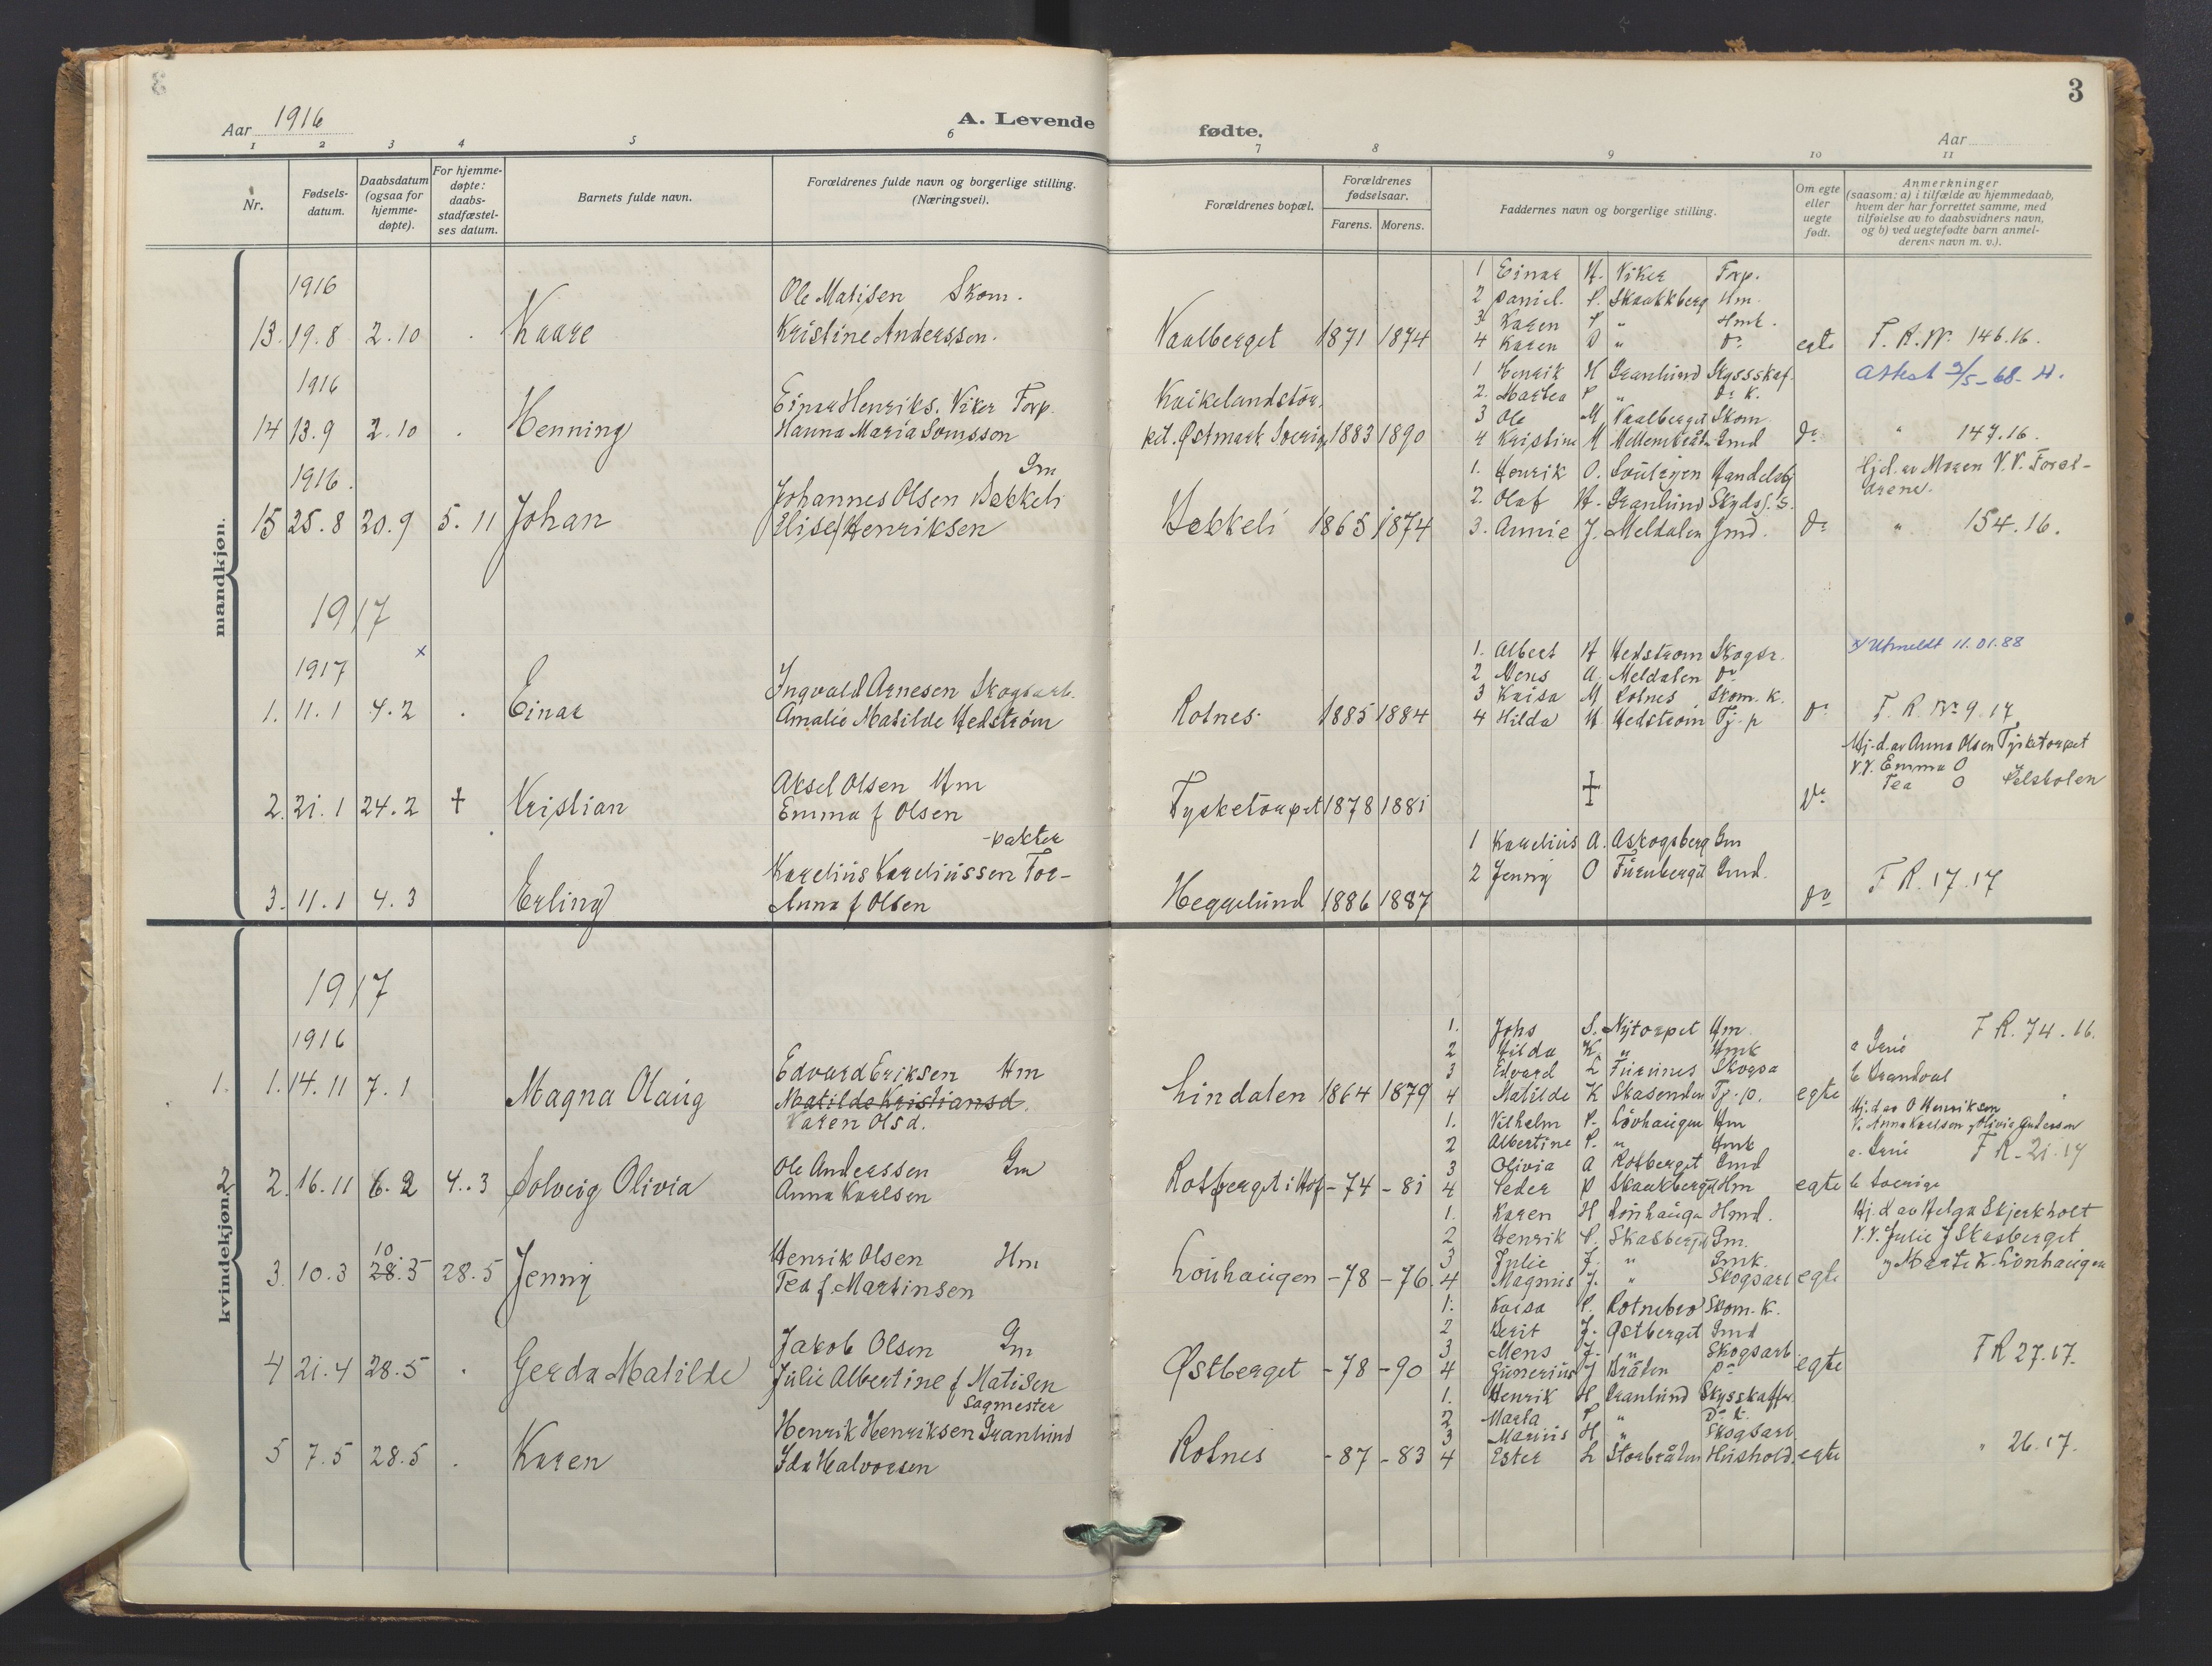 3
Aar 1916
A. Levende fødte.
Aar
1 2 3 4 5 6 7 8 9 10 11
Nr.
Fødsels-datum.
Daabsdatum (ogsaa for hjemme-døpte).
For hjemme-døpte: daabs-stadfæstel-ses datum.
Barnets fulde navn.
Forældrenes fulde navn og borgerlige stilling. (Næringsvei).
Forældrenes bopæl.
Forældrenes fødselsaar.
Farens. Morens.
Faddernes navn og borgerlige stilling.
Om egte eller uegte født.
Anmerkninger
(saasom: a) i tilfælde av hjemmedaab,
hvem der har forrettet samme, med
tilføielse av to daabsvidners navn,
og b) ved uegtefødte barn anmel-
derens navn m. v.).
mandkjøn.
1916
13. 19.8 2.10 . Kaare
Ole Matisen Skom.
Kristine Anderssen.
Vaalberget 1871 1874
1 Einar H. Viker Forp.
2 Daniel P. Skaukberg Hm.
3 Karen P " Hmk.
4 Karen D " Do
egte F. R. Nr. 146.16.
1916
14 13.9 2.10 . Henning
Einar Henriks. Viker Forp.
Hanna Maria Somsson
Østmark Sverig 1883 1890
1 Henrik H Granlund Skyssskaf.
2. Martea P " Do K.
3 Ole M Vaalberget Skom
4 Kristine M Gmd
Do " 147.16.
Attest 2/5-68- H.
1916.
15 25.8 20.9 5.11 Johan
Gm
Johannes Olsen Bekkeli
Elise f Henriksen
Bekkeli 1865 1874
1. Henrik O. Handelsbj
2. Olaf H. Granlund Skyds.s.
3. Annie J. Meldalen Gmd.
Do
Hj.d. av Moren V.V. Forel-
drene.
" 154.16.
1917
1917 x
1. 11.1 4.2 . Einar
Ingvald Arnesen Skogsarb.
Amalie Matilde Hedstrøm
Rotnes. 1885 1884
1. Albert H Hedstrom Skogsr.
2 Mens A. Meldalen Do
3 Kaisa M Rotnes Skom. K.
4 Hilda H Hedstrom Tj. p
Do
x) Utmeldt 11.01.88
F. R. Nr 9.17
2. 21.1 24.2 + Kristian
Aksel Olsen Hm
Emma f Olsen
Tysketorpet 1878 1881
+
Do
Hj.d. av Anna Olsen Tysketorpet
V.V. Emma O
Tea O
3. 11.1 4.3 Erling
-pakter
Karelius Kareliussen For-
Anna f Olsen
Heggelund 1886 1887
1 Karelius A. Askogsberg Gm
2 Jenny O Furuberget Gmd.
Do F R. 17.17
kvindekjøn.
1917
1916
1. 1. 14.11 7.1 Magna Olaug
Edvard Eriksen Hm
Matilde Kristiansd.
Karen Olsd.
Lindalen 1864 1879
1. Johs S. Nytorpet Hm
2 Hilda K. " Hmk
3 Edvard L Furunes Skogsa
4 Matilde K Skasenden Tj. p.
egte
F R. 74.16.
a Grue
b Brandval
2 2. 16.11 6.2 4.3 Solveig Olivia
Ole Anderssen Gm
Anna Karlsen
Rotberget i Hof -74 -81
1. Vilhelm P. Lövhaugen Hm
2 Albertine P. " Hmk
3 Olivia A Rotberget Gmd
4 Peder P Skaukberget Hm
egte
Hj.d av O Henriksen
V. Anna Karlsen y Olivia Anderson
a. Grue F R. 21.17
b Sverige
3. 10.3 10 28.5 28.5 Jenny
Henrik Olsen Hm
Tea f. Martinsen
Lövhaugen -78 -76
1. Karen H Lövhauga Hmd.
2 Henrik P. Skasberget Gm.
3 Julie J. " Gmk.
4 Magnus J. " Skogsarb
egte
Hj.d av Helga Skjerkholt
V.V. Julie J Skasberget
y Marte K. Lövhaugen
4 21.4 28.5 . Gerda Matilde
Jakob Olsen Gm
Julie Albertine f Matisen
Østberget -78 -90
1. Kaisa P. Rotnebro Skom. K.
2 Berit J. Østberget Gmd
3 Mens J. " Skogsarb
4 Gunerius J Bråten Do
egte F R 27.17.
5 7.5 28.5 . Karen
Sagmester
Henrik Henriksen Granlund
Ida Halvorsen
Rotnes -87 -83
1. Henrik H Granlund Skysskaffer
2 Marta P " Do k.
3 Marius H " Skogsarb
4 Ester L Storbråten Hushold.
egte " 26.17.